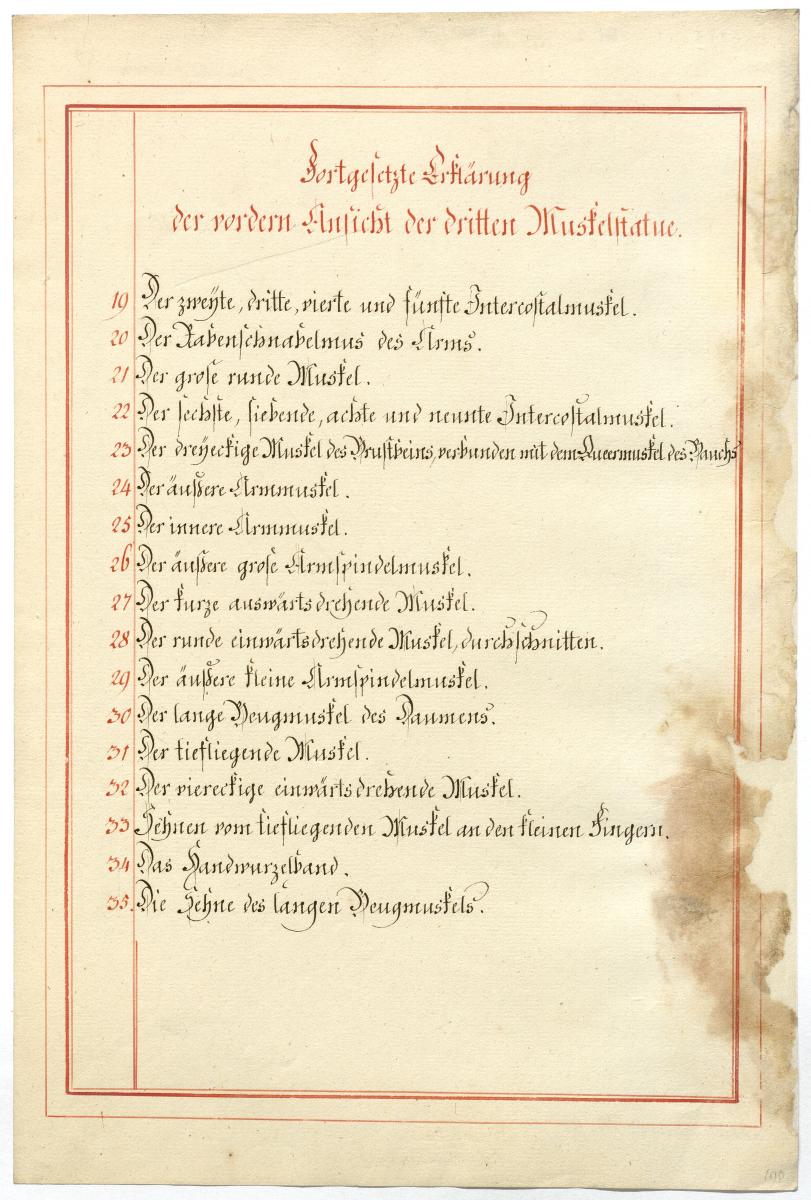 Fortgesetzte Erklärung
der vordern Ansicht der dritten Muskelstatue.
19 Der zweyte, dritte, vierte und fünfte Intercostalmuskel.
20 Der Rabenschnabelmus des Arms.
21 Der grose runde Muskel.
22 Der sechste, siebende, achte und neunte Intercostalmuskel.
23 Der dreyeckige Muskel des Brustbeins, verbunden mit dem Queermuskel des Bauchs
24 Der äußere Armmuskel.
25 Der innere Armmuskel.
26 Der äußere grose Armspindelmuskel.
27 Der kurze auswärtsdrehende Muskel.
28 Der runde einwärtsdrehende Muskel, durchschnitten.
29 Der äußere kleine Armspindelmuskel.
30 Der lange Beugmuskel des Daumens.
31 Der tiefliegende Muskel.
32 Der viereckige einwärtsdrehende Muskel.
33 Sehnen vom tiefliegenden Muskel an den kleinen Fingern.
34 Das Handwurzelband.
35. Die Sehne des langen Beugmuskels.